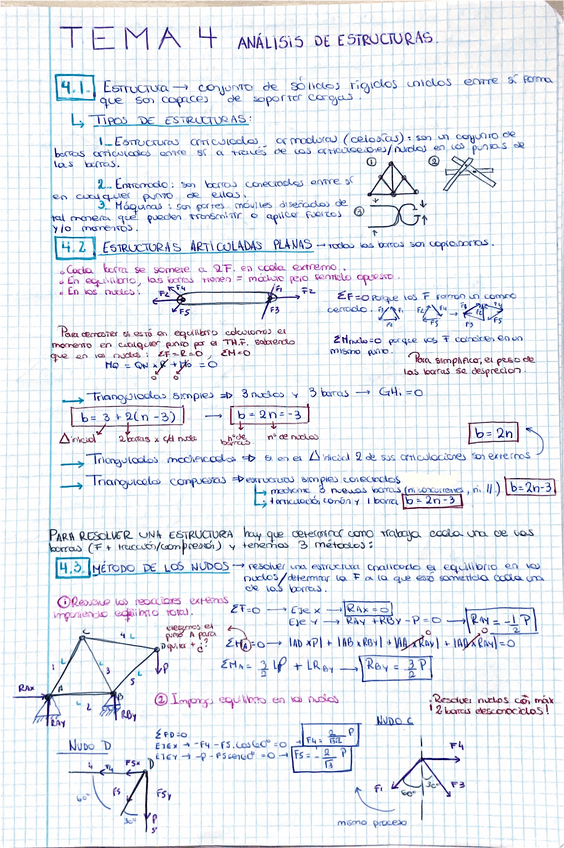 TEMA 4 ANÁLISIS DE ESTRUCTURAS.
4.1. ESTRUCTURA → conjunto de sólidos rígidos unidos entre sí forma
que son capaces de soportar cargas.
↳ TIPOS DE ESTRUCTURAS:
1_ Estructuras articuladas, armaduras (celosías): son un conjunto de
barras articuladas entre sí a través de las articulaciones/nudos en las puntas de
las barras.
2_ Entramado: son barras conectadas entre sí
en cualquier punto de ellas.
3_ Máquinas: son partes móviles diseñadas de
tal manera que pueden transmitir o aplicar fuerzas
y/o momentos.
① ②
③
4.2. ESTRUCTURAS ARTICULADAS PLANAS → todas las barras son coplanarias.
• Cada barra se somete a 2F. en cada extremo.
• En equilibrio, las barras tienen = módulo pero sentido opuesto.
• En los nudos:
F4 F2 F5 F1 F2 F3
ΣF=0 porque las F forman un camino
cerrado.
ΣM nudo=0 porque las F coinciden en un
mismo punto.
Para demostrar si está en equilibrio calculamos el
momento en cualquier punto por el TH.F. sabiendo
que en los nudos: ΣF=R=0, ΣM=0
Para simplificar, el peso de
las barras se desprecian.
→ Triangulados simples ⇒ 3 nudos y 3 barras → GHi = 0
b = 3 + 2(n - 3) → b = 2n = -3
Δ inicial 2 barras x cada nudo nº de barras nº de nudos
b = 2n
→ Triangulados modificados ⇒ si en el Δ inicial 2 de sus articulaciones son externas
→ Triangulados compuestos ⇒ estructuras simples conectadas
↳ mediante 3 nuevas barras (ni concurrentes, ni //) b = 2n-3
↳ 1 articulación común y 1 barra b = 2n-3
PARA RESOLVER UNA ESTRUCTURA hay que determinar como trabaja cada una de las
barras (F + tracción/compresión) y tenemos 3 métodos:
4.3. MÉTODO DE LOS NUDOS → resolver una estructura analizando el equilibrio en los
nudos/determinar la F a la que esa sometida cada una
de las barras.
① Resolver las reacciones externas
imponiendo equilibrio total.
ΣF=0 → EJE X → RAX = 0
EJE Y → RAY + RBY - P = 0 → RAY = -1/2 P
elegimos el
punto A para
quitar + d
ΣM A = 0 → |AD x P| + |AB x RBY| + |AA x RAY| + |AA x RAX| = 0
ΣMA = 3/2 LP + LRBY → RBY = 3/2 P
C 4 L D
1 L 3 L 5 L P
RAX A 2 L B
RAY RBY
② Impongo equilibrio en los nudos
¡Resolver nudos con máx
2 barras desconocidas!
NUDO D
ΣFD=0
EJE X → -F4 - F5.cos60º = 0 →
EJE Y → -P - F5 sen60º = 0 →
4 F4 F5x D
60º F5 F5y
30º P
NUDO C
F4
F1 60º 30º F3
mismo proceso